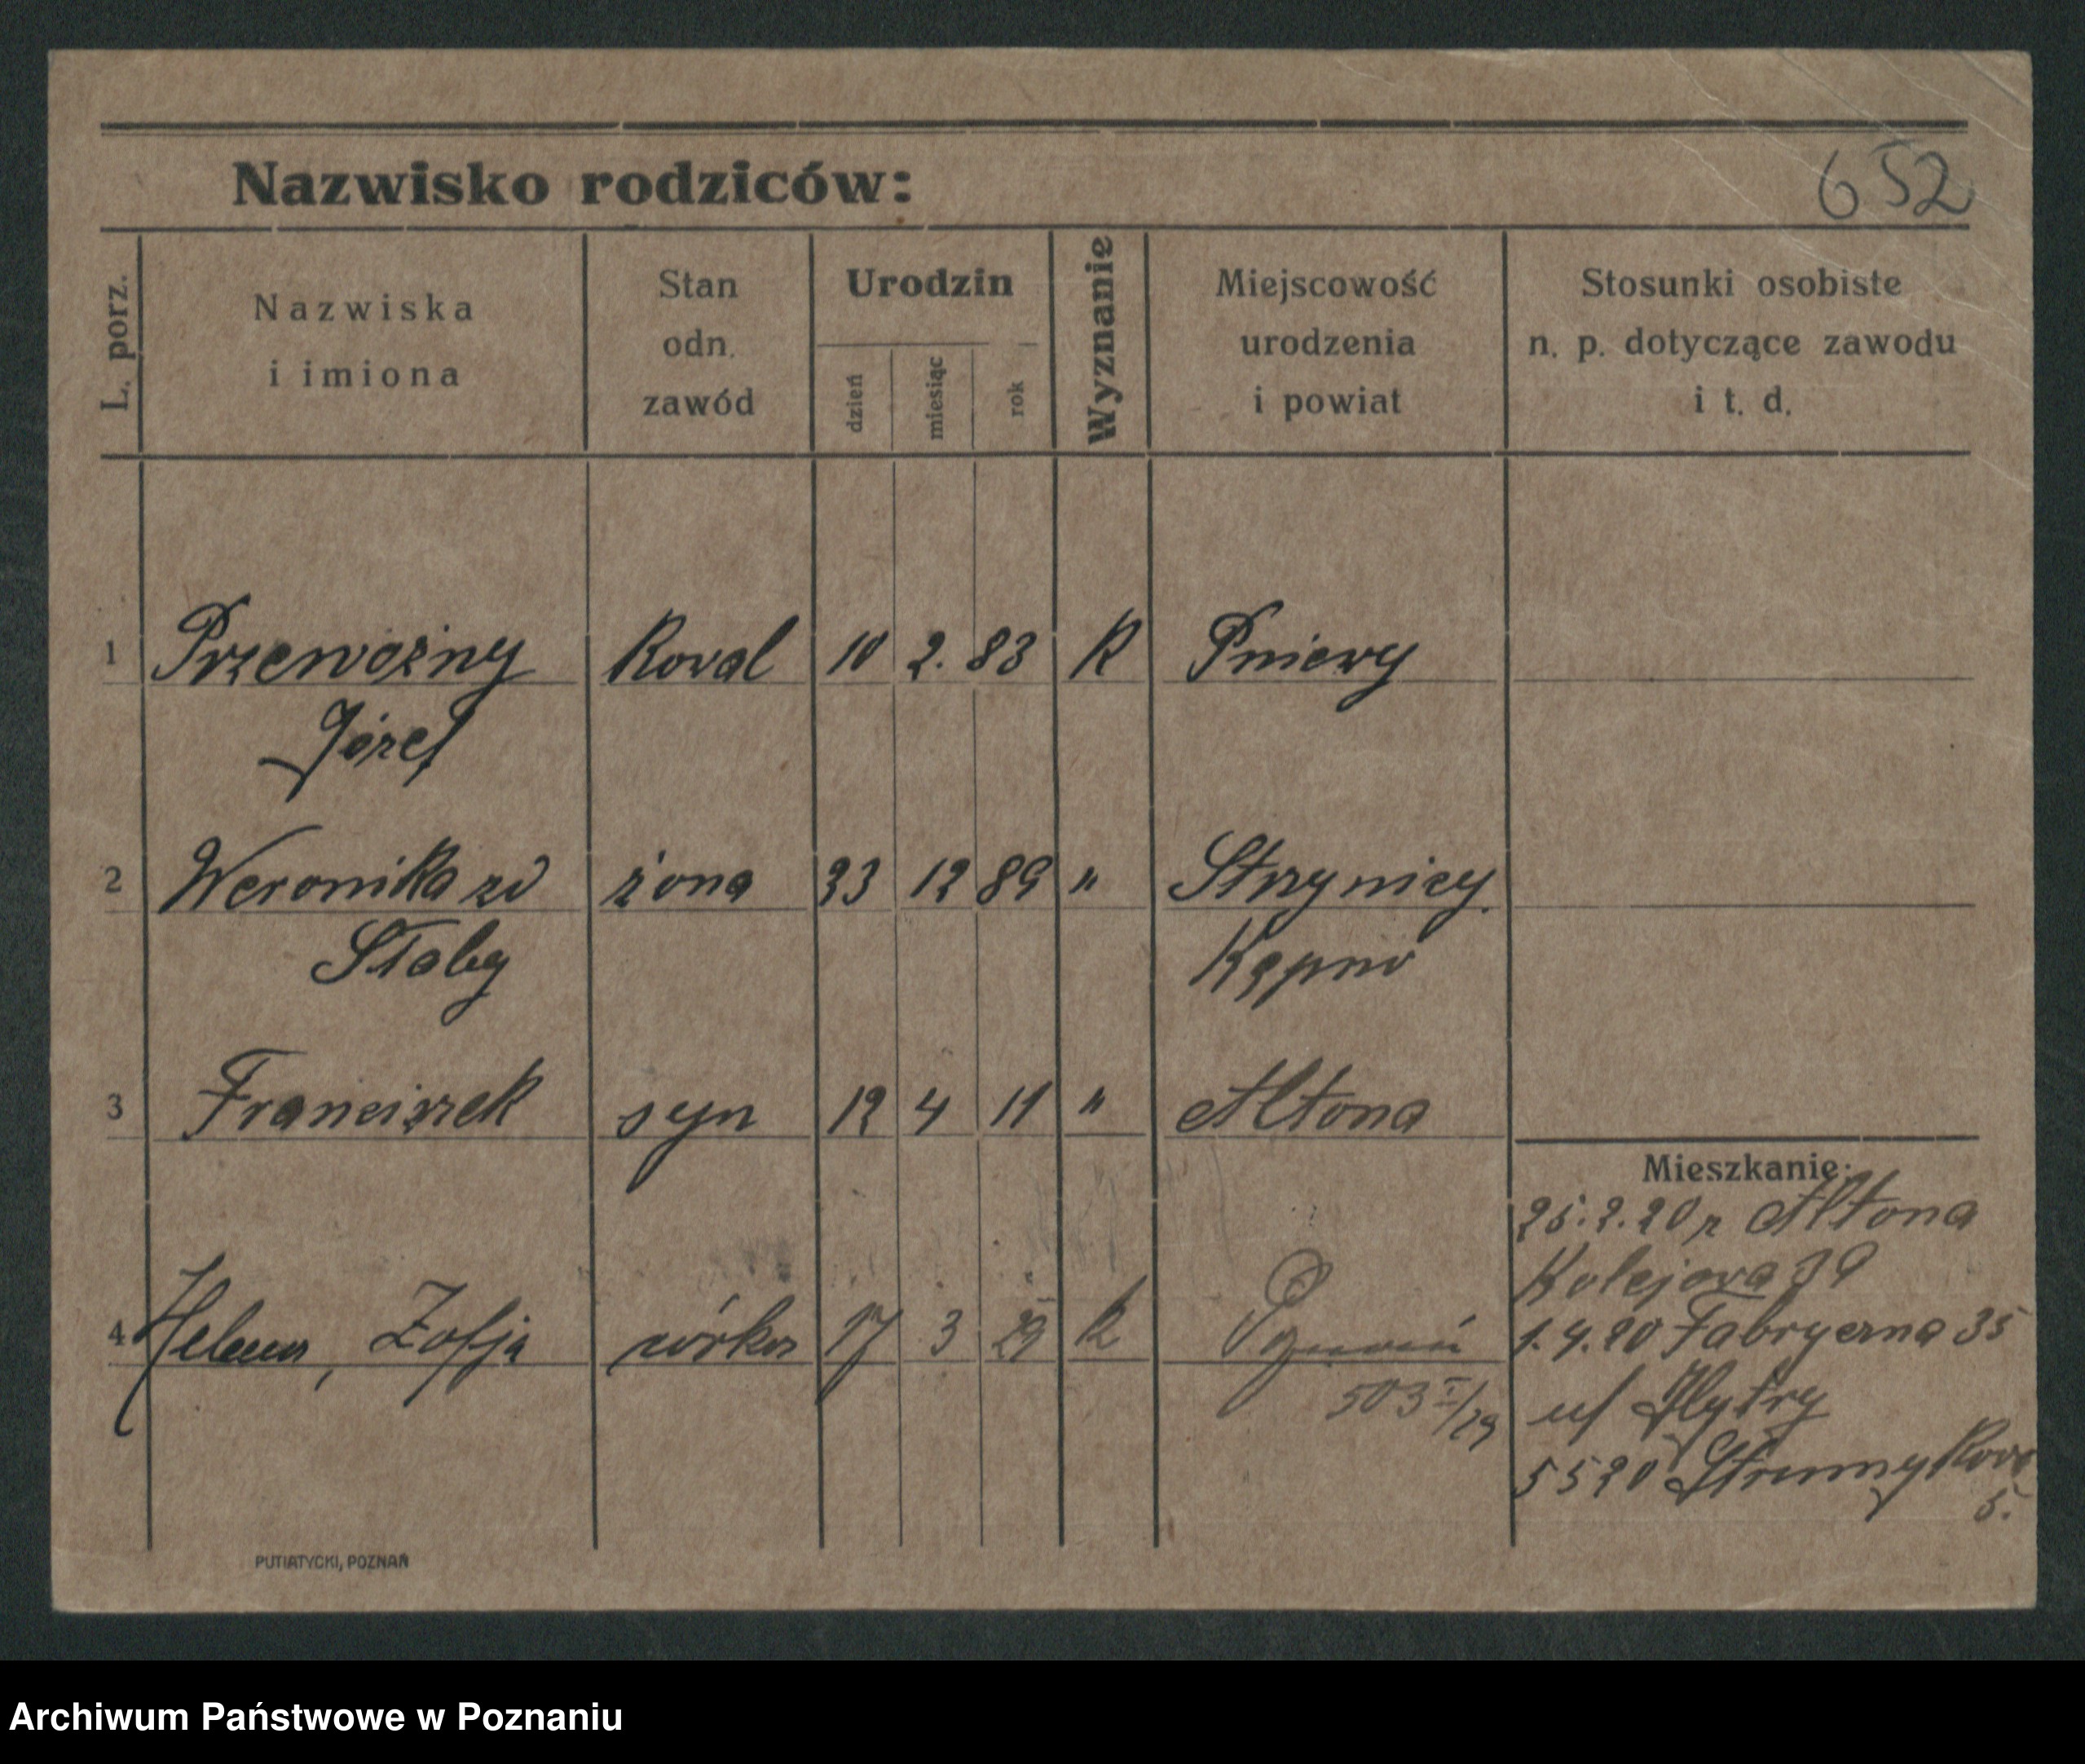 652
Nazwisko rodziców:
L. porz.
Nazwiska
i imiona
Stan
odn.
zawód
Urodzin
dzień
miesiąc
rok
Wyznanie
Miejscowość
urodzenia
i powiat
Stosunki osobiste
n. p. dotyczące zawodu
i t. d.
1 Przewoźny Koval 10 2. 83 R Pniewy
Józef
2 Weronika zd żona 23 12 89 "
Słaby Kępno
3 Franciszek syn 12 4 11 " Altona
Mieszkanie:
25.2.20 r Altona
Kolejova 39
4 Helena, Zofja córka 17 3 29 R Poznań
1.4.20 Fabryczna 35
503 I/29
u/
5520 Strumykova
5.
PUTIATYCKI, POZNAŃ
Archiwum Państwowe w Poznaniu